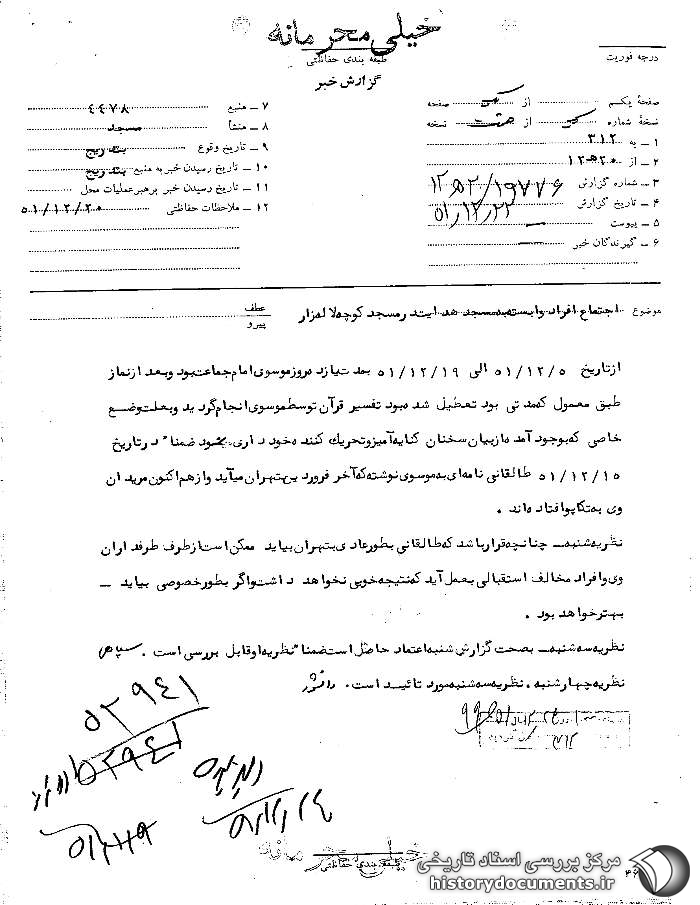 خیلی محرمانه
طبقه بندی حفاظتی
گزارش خبر
درجه فوریت
صفحهٔ یکم از یک صفحه
نسخهٔ شماره یک از هفت نسخه
۱ ــ به ۳۱۲
۲ ــ از ۲۰ ه‍ ۱۲
۳ ــ شماره گزارش ۱۹۷۷۶/۲۰ ه‍ ۱۲
۴ ــ تاریخ گزارش ۵۱/۱۲/۲۲
۵ ــ پیوست ــ
۶ ــ گیرندگان خبر ــ
۷ ــ منبع ۴۴۷۸
۸ ــ منشأ مسجد
۹ ــ تاریخ وقوع بتدریج
۱۰ ــ تاریخ رسیدن خبر به منبع بتدریج
۱۱ ــ تاریخ رسیدن خبر برهبر عملیات محل
۱۲ ــ ملاحظات حفاظتی ۵۱/۱۲/۲۰
موضوع اجتماع افراد وابسته بمسجد هدایت در مسجد کوچه لاله زار
عطف
پیرو
از تاریخ ۵۱/۱۲/۵ الی ۵۱/۱۲/۱۹ بمدت یازده روز موسوی امام جماعت بود و بعد از نماز
طبق معمول که مدتی بود تعطیل شده بود تفسیر قرآن توسط موسوی انجام گردید و بعلت وضع
خاصی که بوجود آمده از بیان سخنان کنایه آمیز و تحریک کننده خودداری میشود ضمنا" در تاریخ
۵۱/۱۲/۱۵ طالقانی نامه ای به موسوی نوشته که آخر فروردین بتهران میآید و از هم اکنون مریدان
وی به تکاپو افتاده اند .
نظریه شنبه ــ چنانچه قرار باشد که طالقانی بطور عادی بتهران بیاید ممکن است از طرف طرفداران
وی و افراد مخالف استقبالی بعمل آید که نتیجه خوبی نخواهد داشت و اگر بطور خصوصی بیاید ــ
بهتر خواهد بود .
نظریه سه شنبه ــ بصحت گزارش شنبه اعتماد حاصل است ضمنا" نظریه او قابل بررسی است . سپاهی
نظریه چهارشنبه . نظریه سه شنبه مورد تائید است . دانشور
۵۲۹۴۱
۵۲۹۴۱
خیلی محرمانه
طبقه بندی حفاظتی
مرکز بررسی اسناد تاریخی
historydocuments.ir